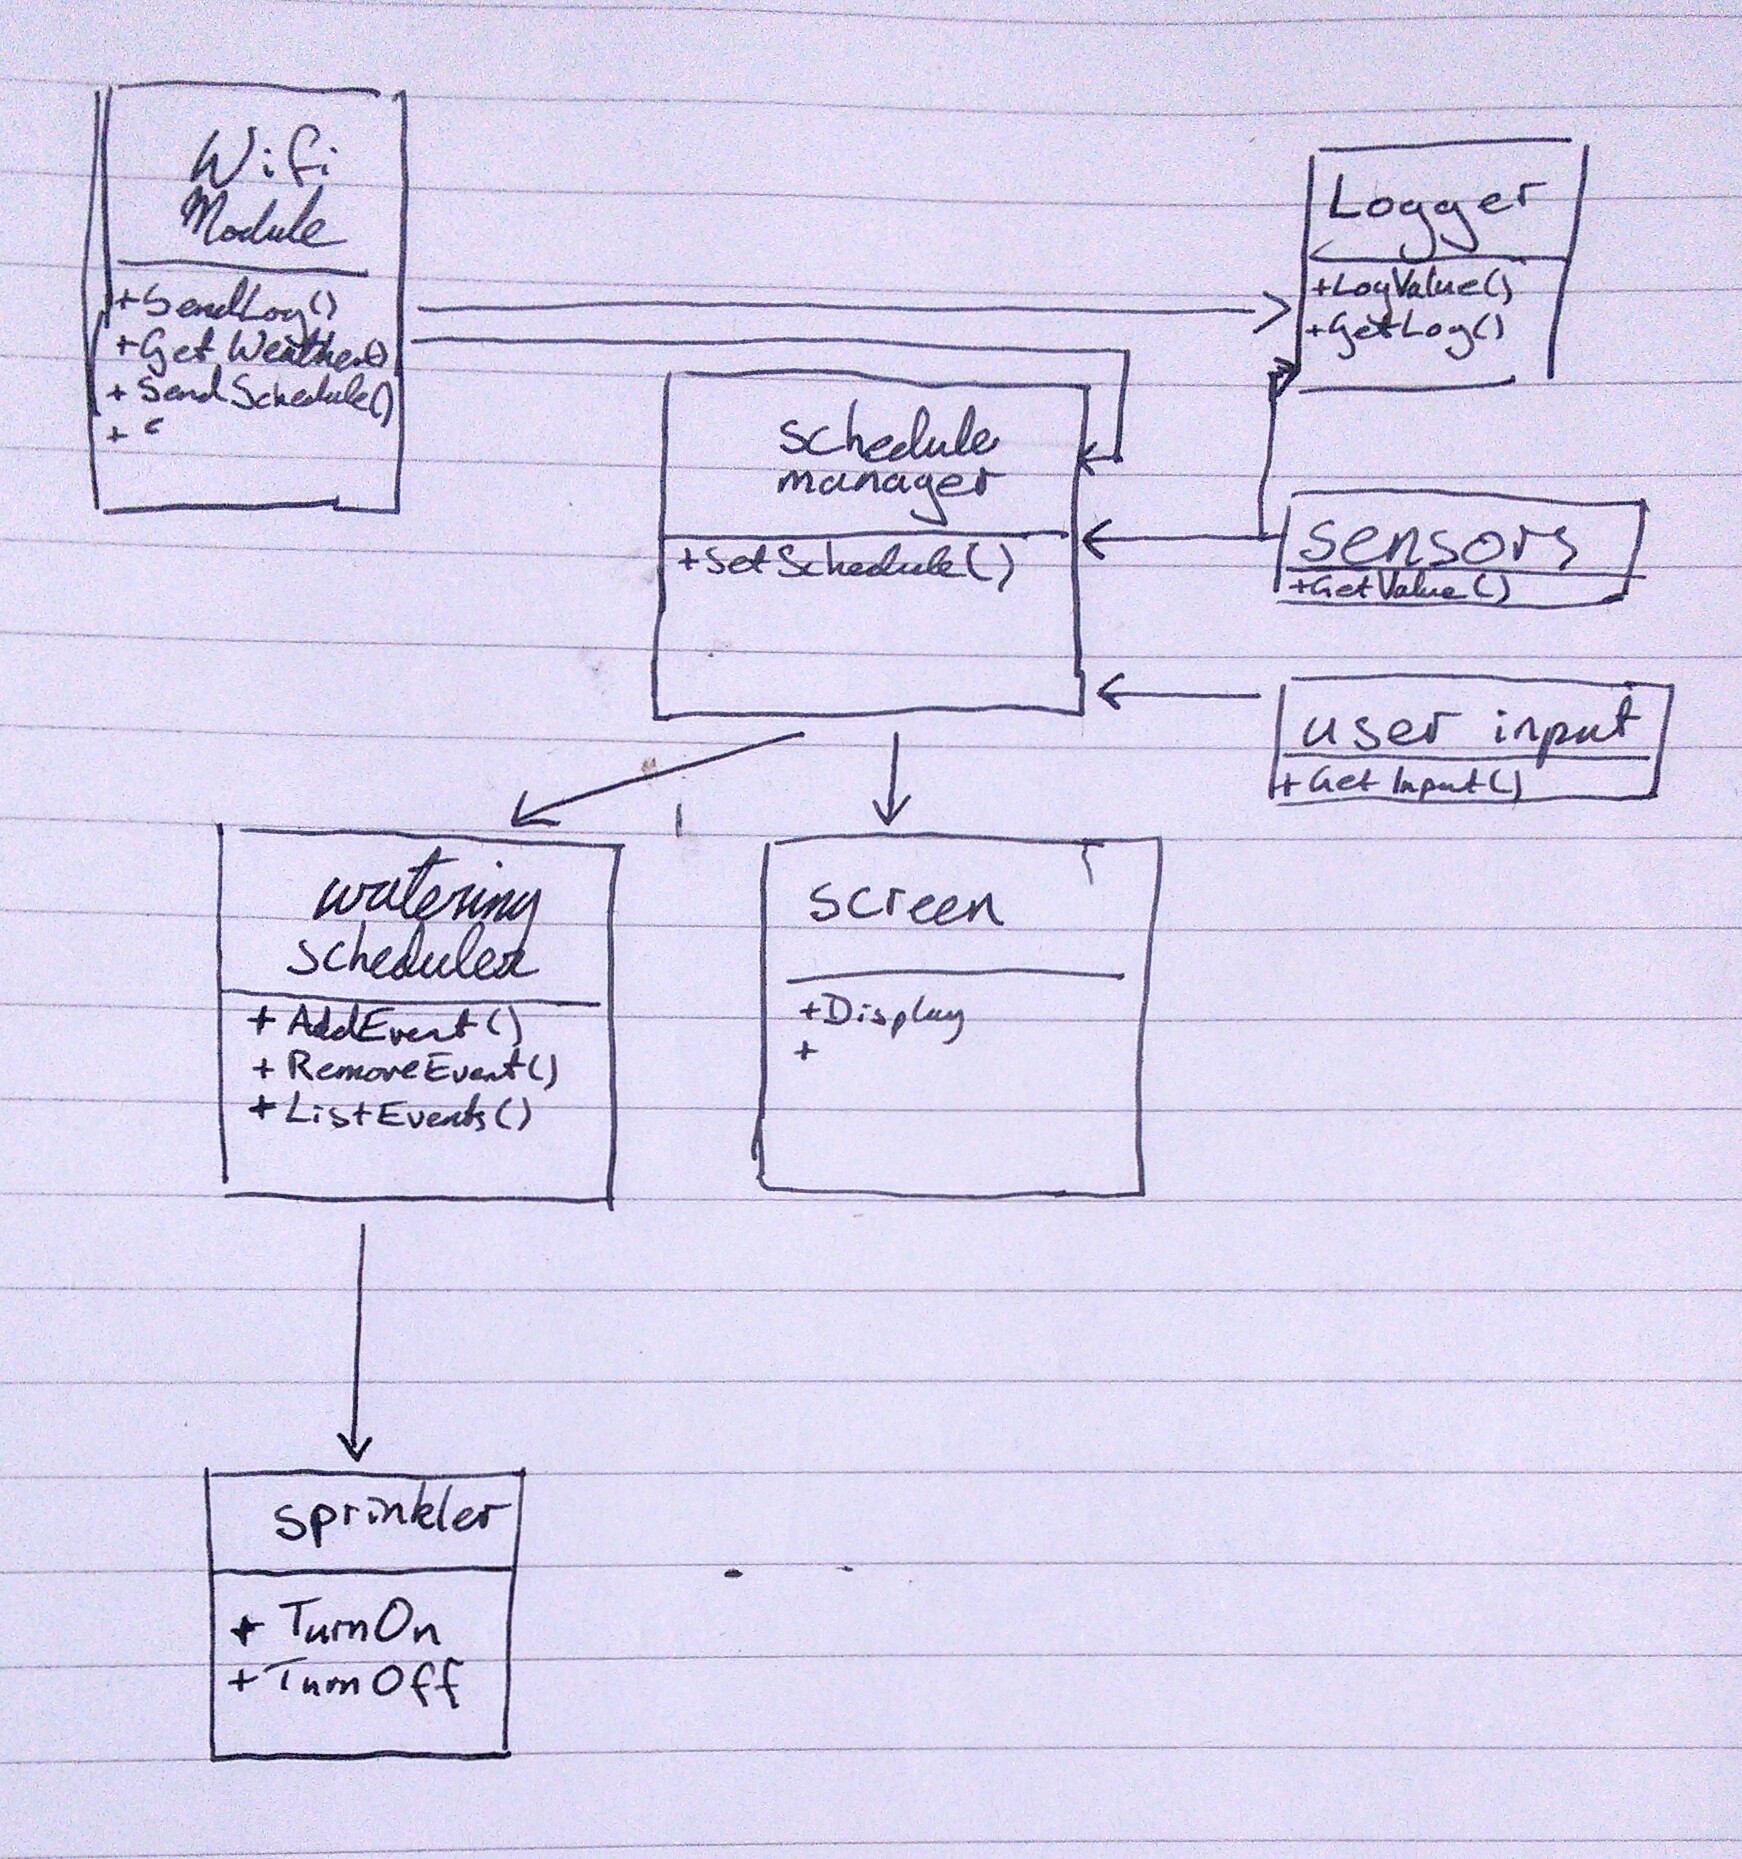 Wifi
Module
+SendLog()
+GetWeather()
+SendSchedule()
+
Logger
+LogValue()
+GetLog()
schedule
manager
+SetSchedule()
sensors
+GetValue()
user input
+GetInput()
watering
scheduler
+AddEvent()
+RemoveEvent()
+ListEvents()
screen
+Display
+
sprinkler
+TurnOn
+TurnOff